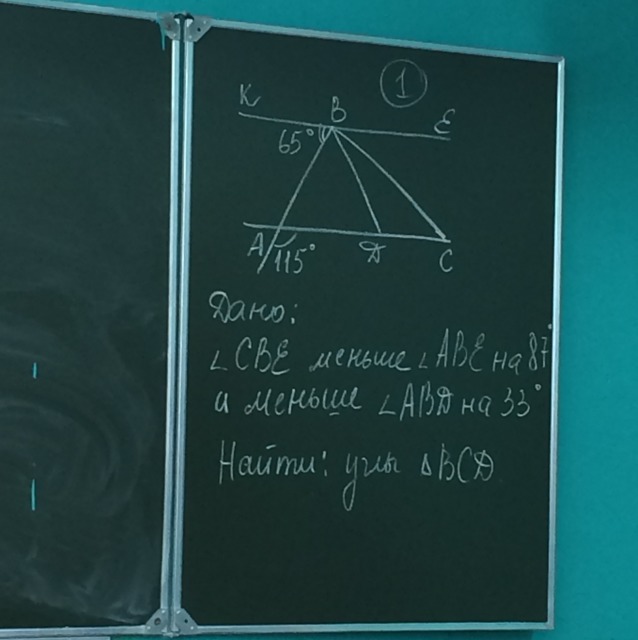 1
K B E
65°
A 115° D C
Дано:
∠CBE меньше ∠ABE на 87°
и меньше ∠ABD на 33°
Найти: углы △BCD